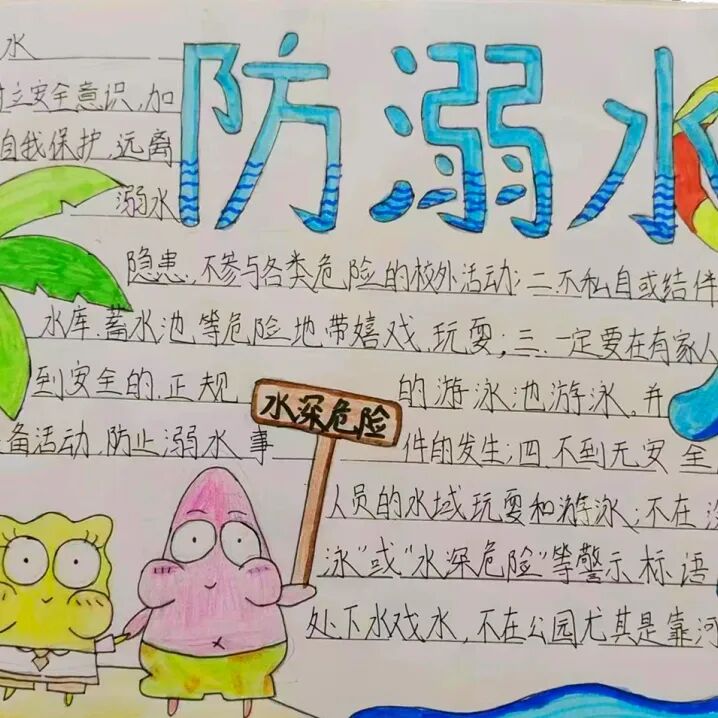 防溺水
水
立安全意识,加
自我保护,远离
溺水
隐患,不参与各类危险的校外活动;二.不私自或结伴
水库.蓄水池.等危险地带嬉戏.玩耍;三.一定要在有家人
到安全的.正规 的游泳池游泳。并
备活动.防止溺水事 件的发生;四.不到无安全
水深危险
人员的水域玩耍和游泳;不在
泳"或"水深危险"等警示标语
处下水戏水,不在公园尤其是靠河